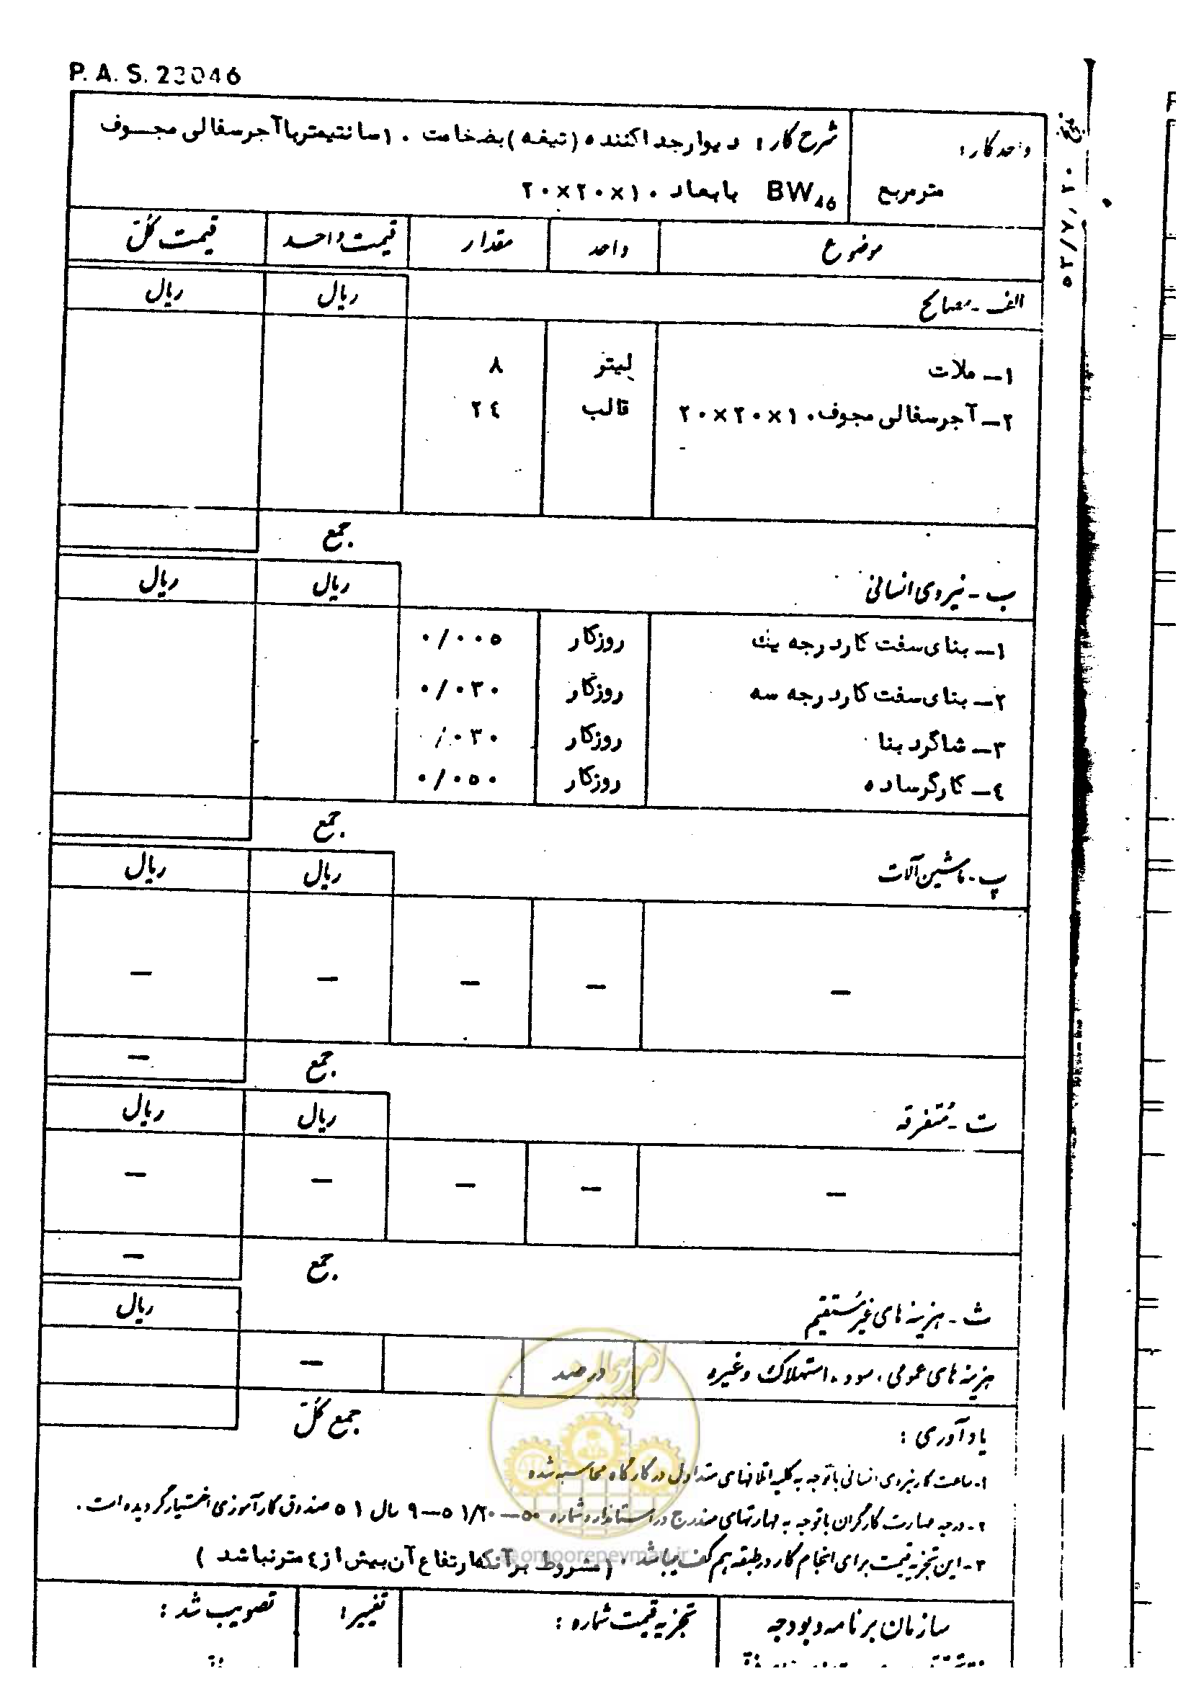 P. A. S. 23046
واحد کار :
مترمربع
شرح کار : دیوار جداکننده (تیغه) بضخامت ۱۰ سانتیمتر با آجر سفالی مجوف
BW46 بابعاد ۱۰×۲۰×۲۰
موضوع واحد مقدار قیمت واحد قیمت کل
الف - مصالح ریال ریال
۱- ملات لیتر ۸
۲- آجر سفالی مجوف ۱۰×۲۰×۲۰ قالب ۲٤
جمع
ب - نیروی انسانی ریال ریال
۱- بنای سفت کار درجه یک روزکار ۰/۰۰۵
۲- بنای سفت کار درجه سه روزکار ۰/۰۳۰
۳- شاگرد بنا روزکار ۰/۰۳۰
٤- کارگر ساده روزکار ۰/۰۵۰
جمع
پ - ماشین آلات ریال ریال
— — — — —
جمع —
ت - متفرقه ریال ریال
— — — — —
جمع —
ث - هزینه های غیرمستقیم ریال
هزینه های عمومی ، سود ، استهلاک وغیره درصد —
جمع کل
یادآوری :
۱- ساعت کار نیروی انسانی باتوجه به کلیه اتلافهای متداول در کارگاه محاسبه شده
۲- درجه مهارت کارگران باتوجه به مهارتهای مندرج در استاندارد شماره ۹-۵۱/۲۰-۵۰ سال ۵۱ صندوق کارآموزی اختیار گردیده است .
۳- این تجزیه قیمت برای انجام کار در طبقه هم کف میباشد . ( مشروط بر آنکه ارتفاع آن بیش از ٤ متر نباشد )
امور پیمان
@omoorepeyman.ir
سازمان برنامه و بودجه تجزیه قیمت شماره : تغییر : تصویب شد :
۵۳/۷/۲۰